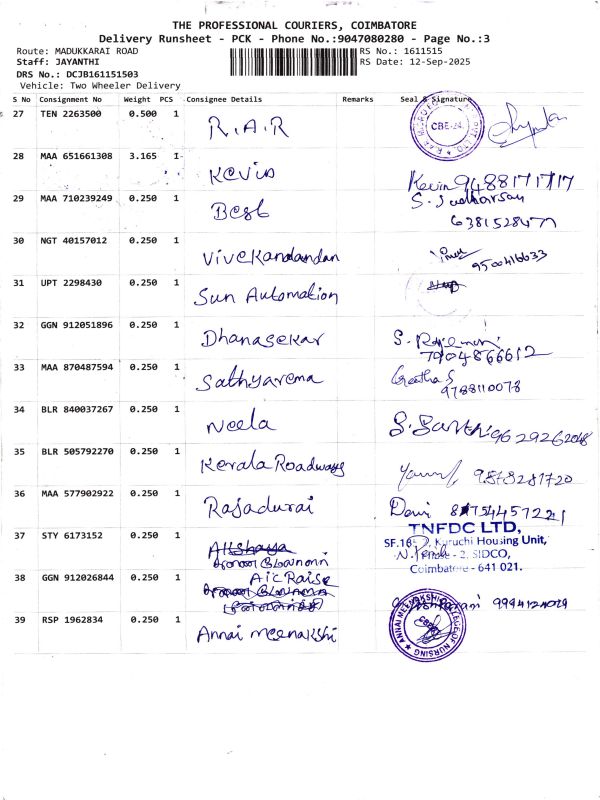 THE PROFESSIONAL COURIERS, COIMBATORE
Delivery Runsheet - PCK - Phone No.:9047080280 - Page No.:3
Route: MADUKKARAI ROAD RS No.: 1611515
Staff: JAYANTHI RS Date: 12-Sep-2025
DRS No.: DCJB161151503
Vehicle: Two Wheeler Delivery
S No Consignment No Weight PCS Consignee Details Remarks Seal & Signature
27 TEN 2263500 0.500 1 R.A.R CBE-24
28 MAA 651661308 3.165 1 Kevin Kevin 9488171717
29 MAA 710239249 0.250 1 Best S. Sudharsan
30 NGT 40157012 0.250 1 Vivekandandan 9500416633
31 UPT 2298430 0.250 1 Sun Automation
32 GGN 912051896 0.250 1 Dhanasekar S.
7904866612
33 MAA 870487594 0.250 1 Sathyarema Geetha S
9788110078
34 BLR 840037267 0.250 1 Neela S.
35 BLR 505792270 0.250 1 Kerala Roadways
36 MAA 577902922 0.250 1 Rajadurai Devi
37 STY 6173152 0.250 1 TNFDC LTD,
Kuruchi Housing Unit,
2, SIDCO,
Coimbatore - 641 021.
38 GGN 912026844 0.250 1 AiC Raise
39 RSP 1962834 0.250 1 Annai meenakshi ANNAI MEENAKSHI COLLEGE OF NURSING